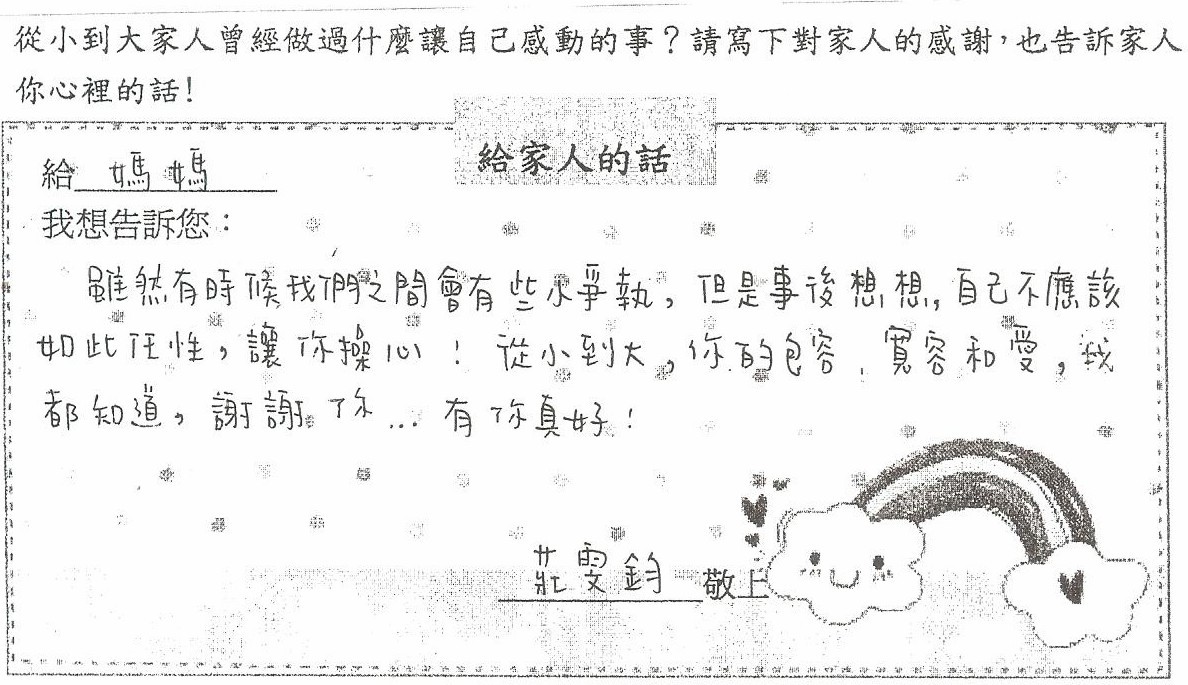 從小到大家人曾經做過什麼讓自己感動的事？請寫下對家人的感謝，也告訴家人
你心裡的話！
給家人的話
給 媽媽
我想告訴您：
雖然有時候我們之間會有些小爭執，但是事後想想，自己不應該
如此任性，讓你操心！從小到大，你的包容、寬容和愛，我
都知道，謝謝你…有你真好！
莊雯鈞 敬上